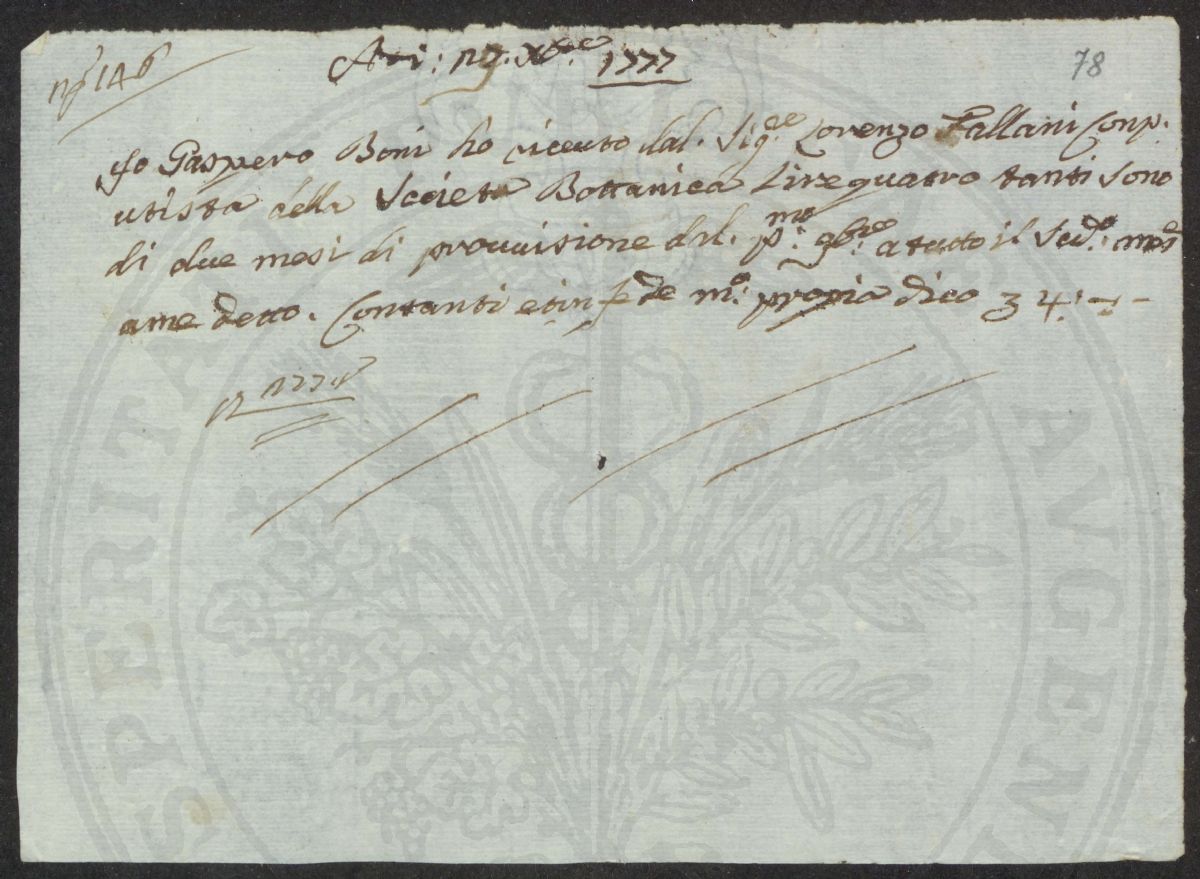 n.° 146
Adi: 27. Xbre 1777
78
Io Gaspero Boni ho riceuto dal. Sig.re Lorenzo Fallani Conp.
utista della Sciieta Bottanica Lire quatro tanti sono
di due mesi di prouuisione dal. p.mo 9bre a tutto il Sud.o
ame detto. Contanti et in fede m.o propia dico 34:-:-
1777
SPERITATI
AVGEN